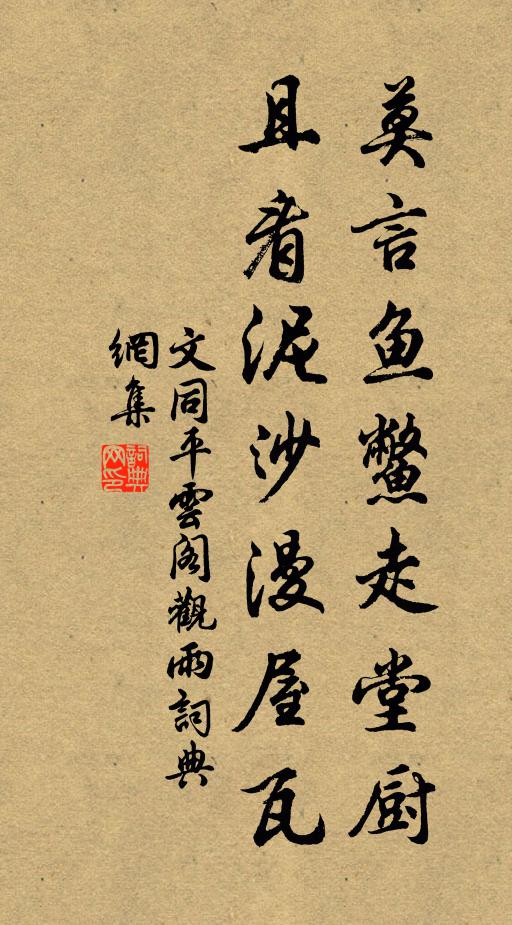 莫言鱼鱉走堂厨
且看泥沙漫屋瓦
文同平雲阁觀雨詞典
網集
詞典
网印